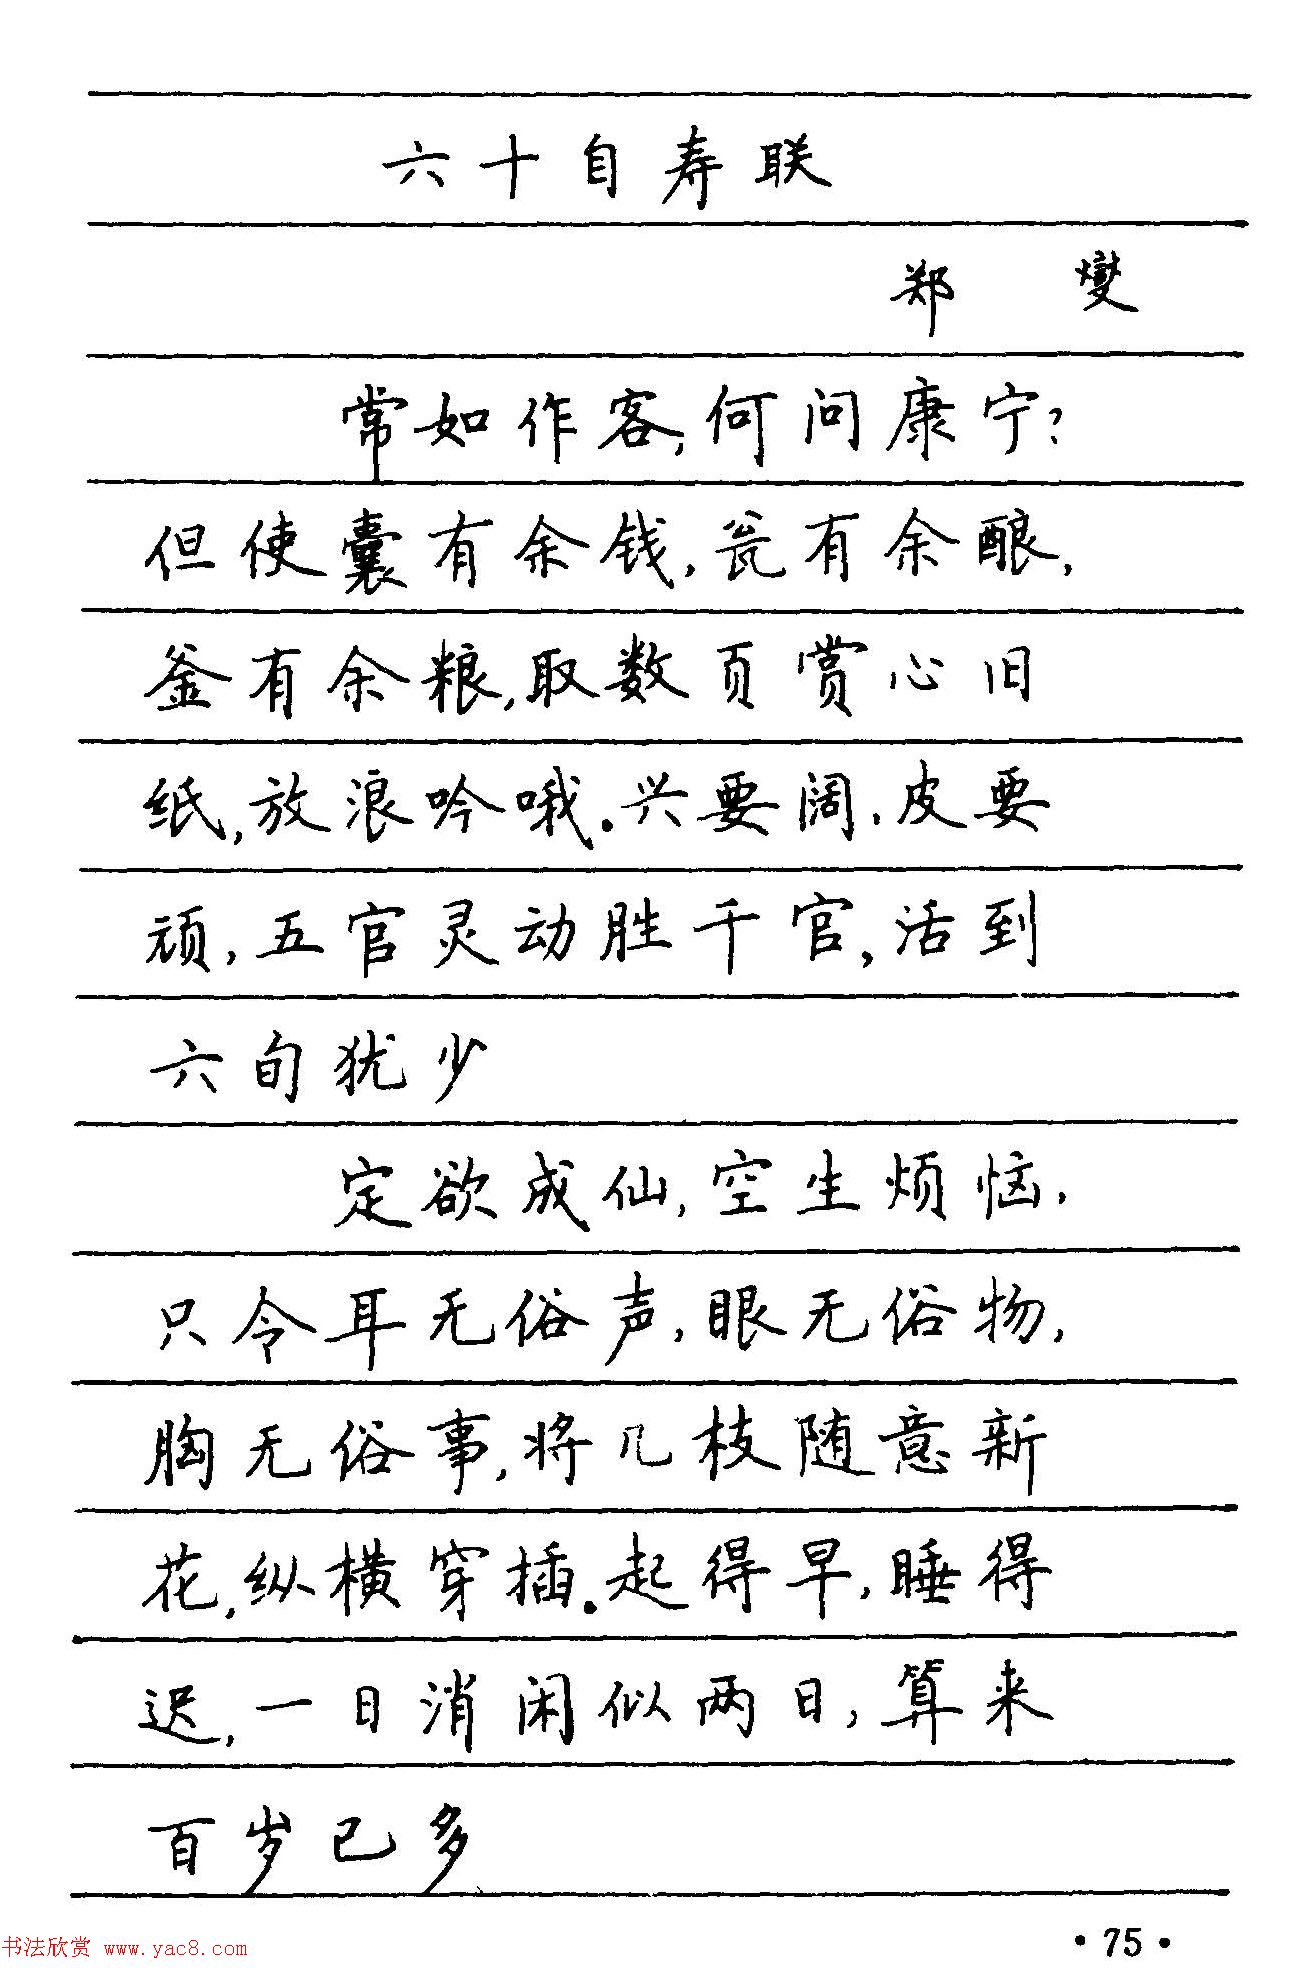 六十自寿联
郑 燮
常如作客,何问康宁?
但使囊有余钱,瓮有余酿,
釜有余粮,取数页赏心旧
纸,放浪吟哦.兴要阔,皮要
顽,五官灵动胜千官,活到
六旬犹少
定欲成仙,空生烦恼,
只令耳无俗声,眼无俗物,
胸无俗事,将几枝随意新
花,纵横穿插.起得早,睡得
迟,一日消闲似两日,算来
百岁已多
书法欣赏 www.yac8.com
·75·